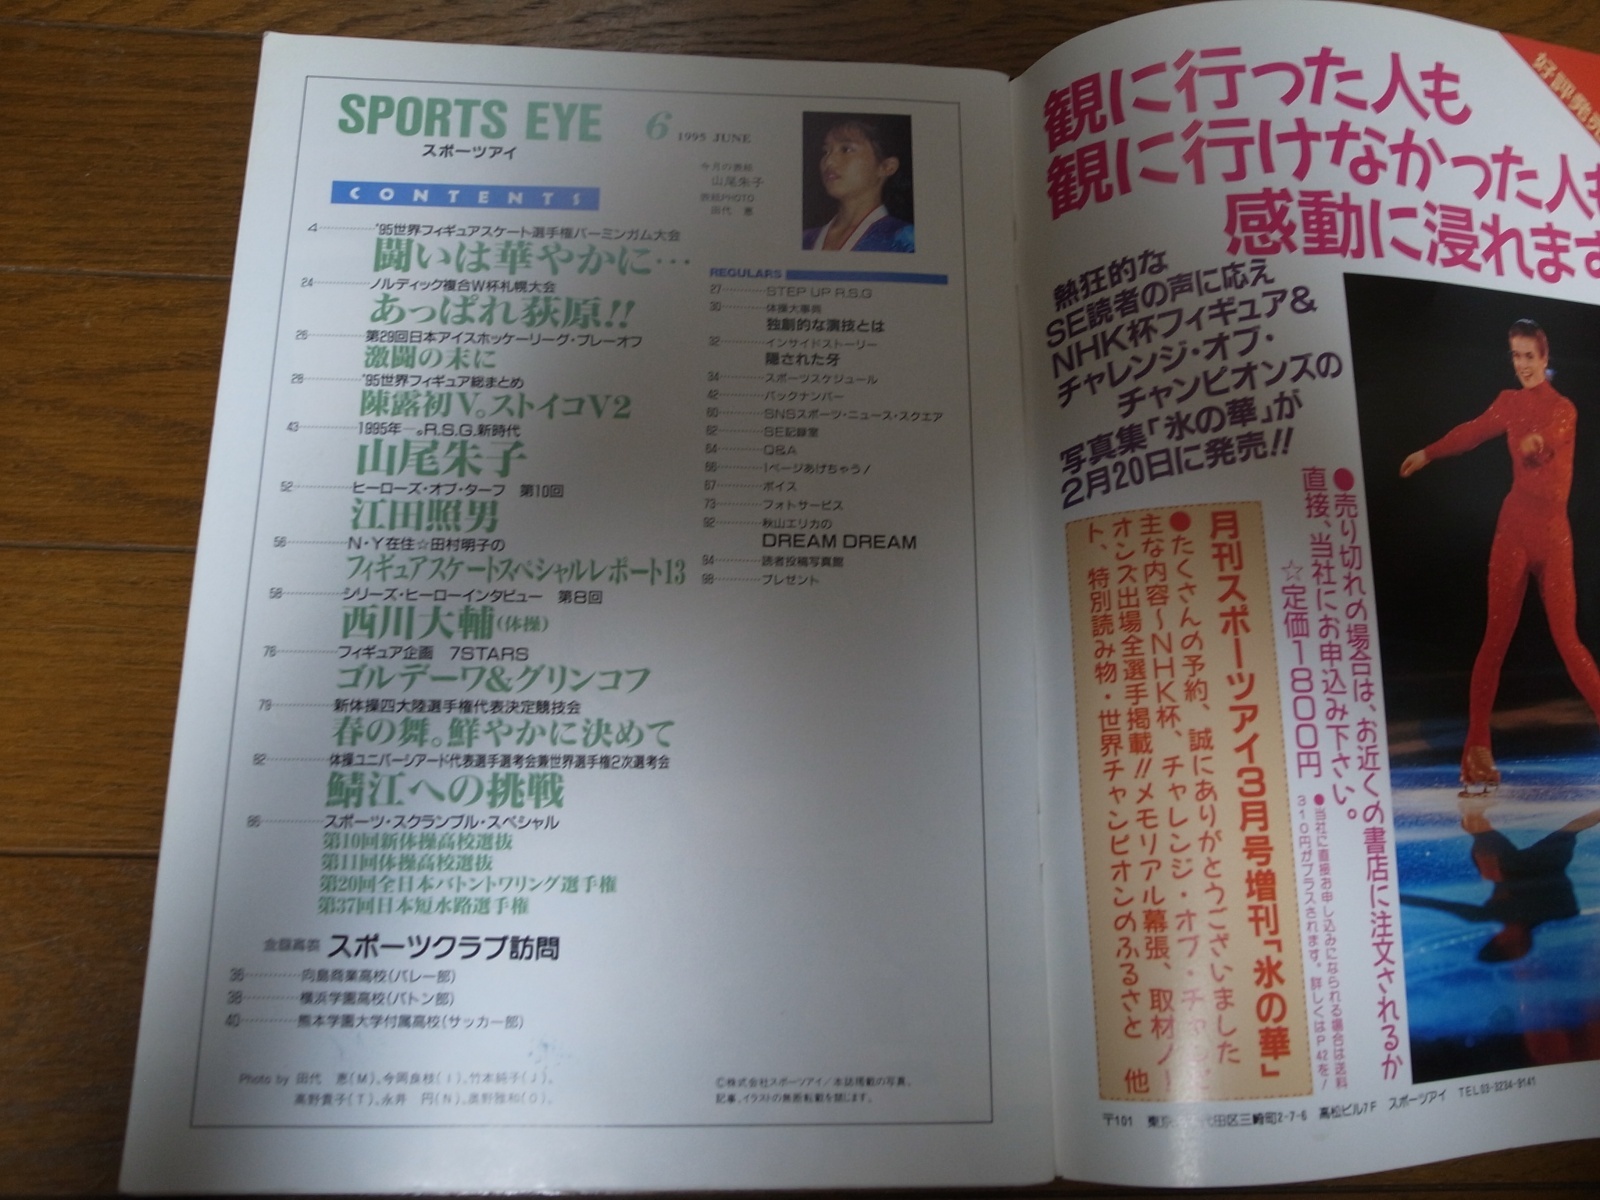 SPORTS EYE 6 1995 JUNE
スポーツアイ
今月の表紙
山尾朱子
表紙PHOTO
田代 恵
CONTENTS
4 '95世界フィギュアスケート選手権バーミンガム大会
闘いは華やかに…
24 ノルディック複合W杯札幌大会
あっぱれ荻原!!
26 第29回日本アイスホッケーリーグ・プレーオフ
激闘の末に
28 '95世界フィギュア総まとめ
陳露初V。ストイコV2
43 1995年—。R.S.G.新時代
山尾朱子
52 ヒーローズ・オブ・ターフ 第10回
江田照男
56 N・Y在住☆田村明子の
フィギュアスケートスペシャルレポート13
58 シリーズ・ヒーローインタビュー 第8回
西川大輔(体操)
76 フィギュア企画 7STARS
ゴルデーワ&グリンコフ
79 新体操四大陸選手権代表決定競技会
春の舞。鮮やかに決めて
82 体操ユニバーシアード代表選手選考会兼世界選手権2次選考会
鯖江への挑戦
86 スポーツ・スクランブル・スペシャル
第10回新体操高校選抜
第11回体操高校選抜
第20回全日本バトントワリング選手権
第37回日本短水路選手権
スポーツクラブ訪問
36 向島商業高校(バレー部)
38 横浜学園高校(バトン部)
40 熊本学園大学付属高校(サッカー部)
REGULARS
27 STEP UP R.S.G
30 体操大事典
独創的な演技とは
32 インサイドストーリー
隠された牙
34 スポーツスケジュール
42 バックナンバー
60 SNSスポーツ・ニュース・スクエア
62 SE記録室
64 Q&A
66 1ページあげちゃう!
67 ボイス
73 フォトサービス
92 秋山エリカの
DREAM DREAM
94 読者投稿写真館
98 プレゼント
Photo by 田代 恵(M)、今岡良枝(I)、竹本純子(J)、
高野貴子(T)、永井 円(N)、奥野雅和(O)、
©株式会社スポーツアイ/本誌掲載の写真、
記事、イラストの無断転載を禁じます。
好評発売
観に行った人も
観に行けなかった人も
感動に浸れます
熱狂的な
SE読者の声に応え
NHK杯フィギュア&
チャレンジ・オブ・
チャンピオンズの
写真集「氷の華」が
2月20日に発売!!
●売り切れの場合は、お近くの書店に注文されるか
直接、当社にお申込み下さい。
☆定価1800円
●当社に直接お申し込みになられる場合は送料
310円がプラスされます。詳しくはP42を!
月刊スポーツアイ3月号増刊「氷の華」
●たくさんの予約、誠にありがとうございました
主な内容〜NHK杯、チャレンジ・オブ・チャンピ
オンズ出場全選手掲載!!メモリアル幕張、取材ノー
ト、特別読み物・世界チャンピオンのふるさと 他
〒101 東京 代田区三崎町2-7-6 高松ビル7F スポーツアイ TEL03-3234-9141